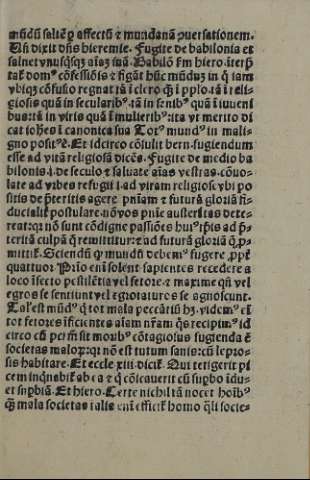 mūdū saltē ꝑ affectū ⁊ mundanā ꝓuersationem.
Uñ dixit dñs hieremie. Fugite de babilonia et
saluet vnusq̄sq̨ aīaʒ suā. Babilō em̄ hiero. īterp̄
tat᷑ domꝰ cōfessiōis ⁊ figāt hūc mūdum in q̊ iam
vbiq̨ cōfusio regnat iā ī clero q̄ ī pplo. tā ī reli-
giosis quā in secularibꝰ. tā in senibꝰ quā ī iuueni
bus: tā in viris quā ī mulieribꝰ: ita vt merito di
cat iohēs ī canonica sua Totꝰ mundꝰ in mali-
gno positꝰ ē. Et idcirco cōsulit bern. fugiendum
esse ad vitā religiosā dicēs. Fugite de medio ba
bilonis .i. de seculo ⁊ saluate aīas vestras. cōuo-
late ad vrbes refugii .i. ad vitam religiosā vbi po
sitis de p̄teritis agere pn̄iam ⁊ futurā gloriā fi-
ducialit᷑ postulare. nō vos pn̄ie austeritas dete-
reat: qr nō sunt cōdigne passiōes huiꝰ tp̄is ad p̄-
teritā culpā q̄ remittitur: ⁊ ad futurā gloriā q̄ ꝓ-
mittit᷑. Sciendū q̊ mundū debemꝰ fugere ꝓpt᷑
quattuor Prīo enī solent sapientes recedere a
loco īfecto pestilētia vel fetore. ⁊ maxime qn̄ vel
egros se sentiunt vel egrotaturos se agnoscunt.
Tal᷑ est mūdꝰ q̄ tot mala peccātiū hʒ. videmꝰ eī
tot fetores īficientes aīam nr̄am q̄s recipimꝰ. id
circo cū perm̄ sit morbꝰ cōtagiosus fugienda ē
societas maloꝝ: qr nō est tutum sanis: cū lepro-
sis habitare. Et eccle xiii. dicit᷑. Qui tetigerit pi
cem inqnabit᷑ ab ea ⁊ q̊ cōicauerit cū suꝑbo īdu-
et suꝑbiā. Et hiero. Certe nichil tā nocet hoībꝰ
q̄ȝ mala societas talis enī efficit᷑ homo q̄li socie-